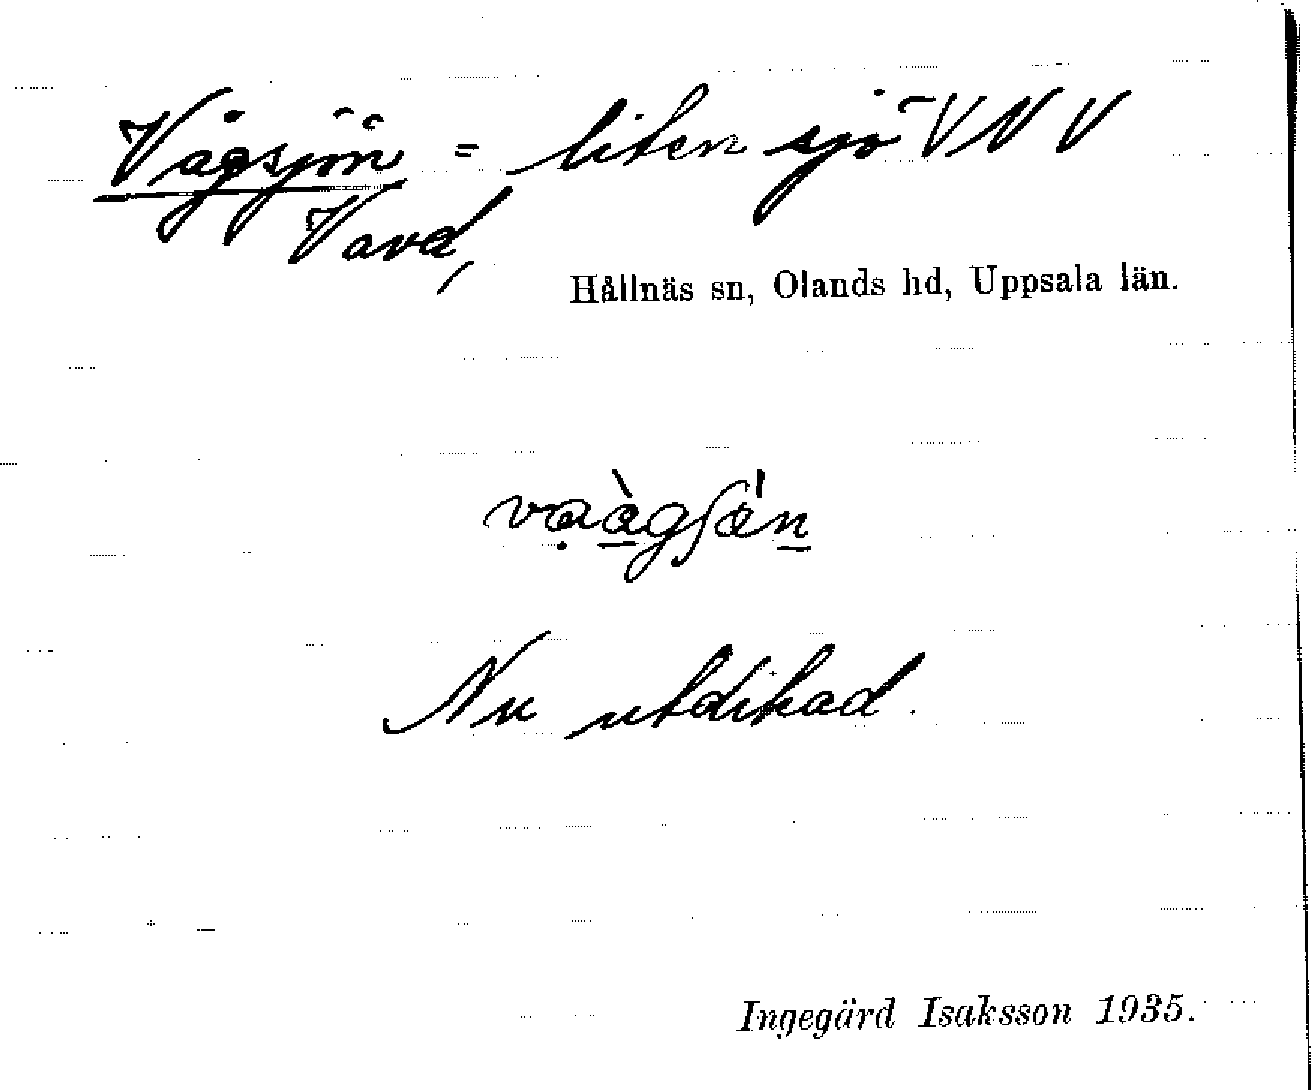 Vågsjön = liten sjö VNV
Vavd,
Hållnäs sn, Olands hd, Uppsala län.
Nu utdikad.
Ingegärd Isaksson 1935.